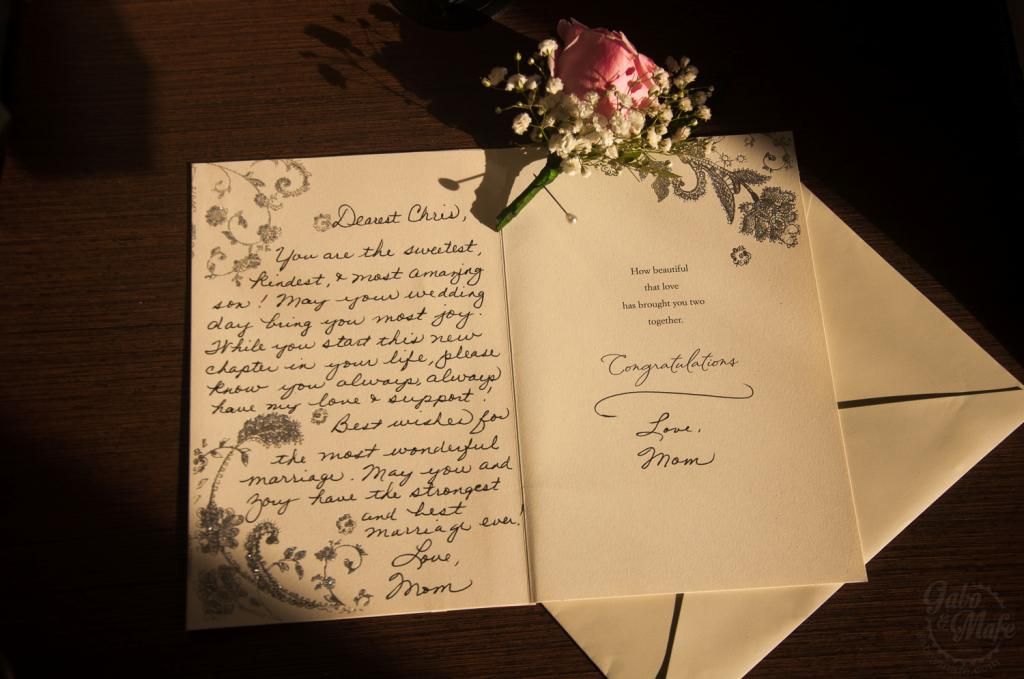 Dearest Chris,
You are the sweetest,
kindest, & most amazing
son! May your wedding
day bring you most joy.
While you start this new
chapter in your life, please
know you always, always
have my love & support!
Best wishes for
the most wonderful
marriage. May you and
Zory have the strongest
and best
marriage ever!
Love,
Mom
How beautiful
that love
has brought you two
together.
Congratulations
Love,
Mom
Gabo
& Mafe